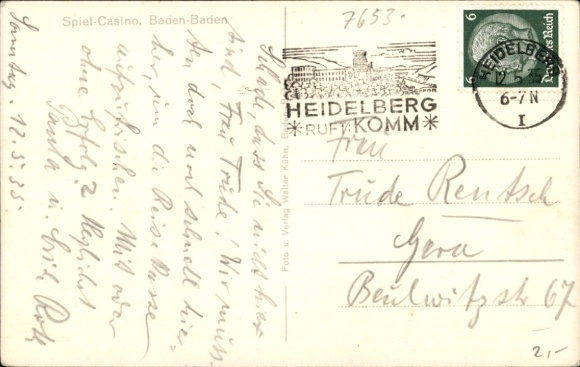 Spiel-Casino, Baden-Baden
7653.
Schade, dass Sie nicht hier
sind Frau Trude! Wir muss-
ten doch noch schnell hier-
her, um die Reise Kasse
aufzufrischen. Mit oder
ohne Erfolg?
Paula u. Erich
Sonntag. 12.5.35.
Foto u. Verlag Walter Kühn,
HEIDELBERG
RUFT: KOMM
HEIDELBERG
12.5.35
6-7 N
I
6
6
Deutsches Reich
Frau
Trude Rentsch
Gera
Beulwitzstr 67
2,-